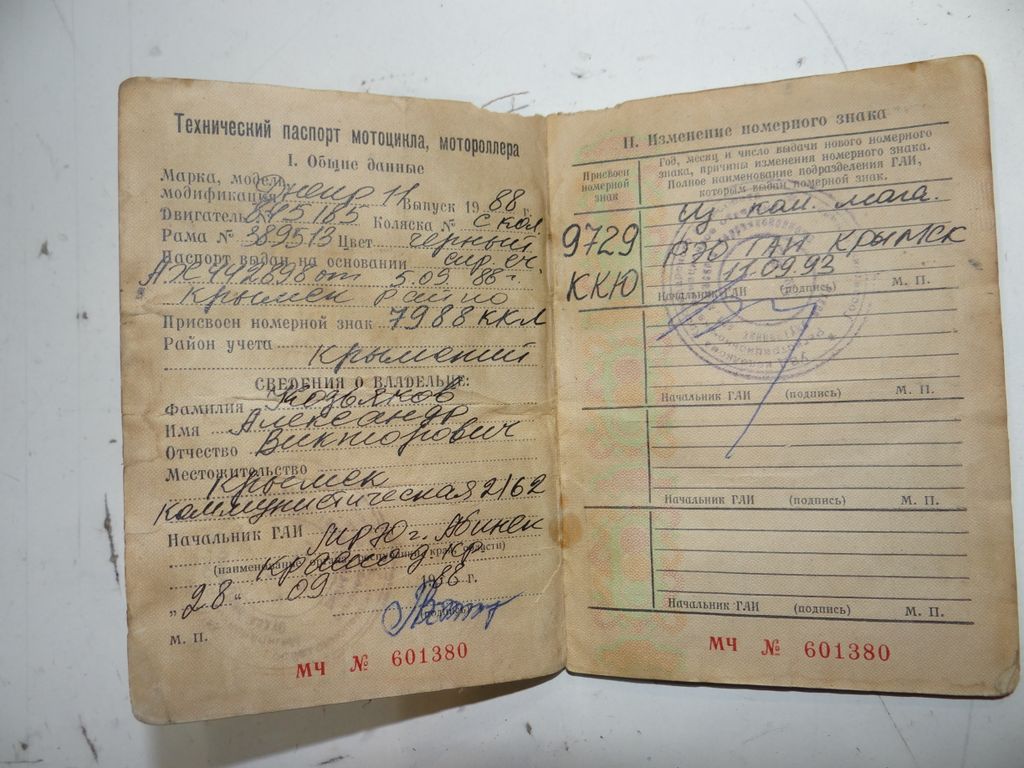 Технический паспорт мотоцикла, мотороллера
I. Общие данные
Марка, модель,
модификация Днепр 11 Выпуск 19 88 г.
Двигатель Коляска № с кол.
Рама № 389513 Цвет черный
Паспорт выдан на основании спр. сч.
АХ 442898 от 5.09 88 г.
Крымск Райпо
Присвоен номерной знак 7988 ккл
Район учета
Крымский
СВЕДЕНИЯ О ВЛАДЕЛЬЦЕ:
Фамилия
Имя Александр
Отчество Викторович
Местожительство
Крымск
Коммунистическая 2/62
Начальник ГАИ МРЭО г. Абинск
Краснод. кр.
„28“ 09 1988 г.
М. П.
МЧ № 601380
II. Изменение номерного знака
Присвоен номерной знак
Год, месяц и число выдачи нового номерного
знака, причины изменения номерного знака.
Полное наименование подразделения ГАИ,
которым выдан номерной знак.
9729
ККЮ
из ком. мага.
РЭО ГАИ КРЫМСК
17.09.93
Начальник ГАИ (подпись) М. П.
Начальник ГАИ (подпись) М. П.
Начальник ГАИ (подпись) М. П.
Начальник ГАИ (подпись) М. П.
МЧ № 601380